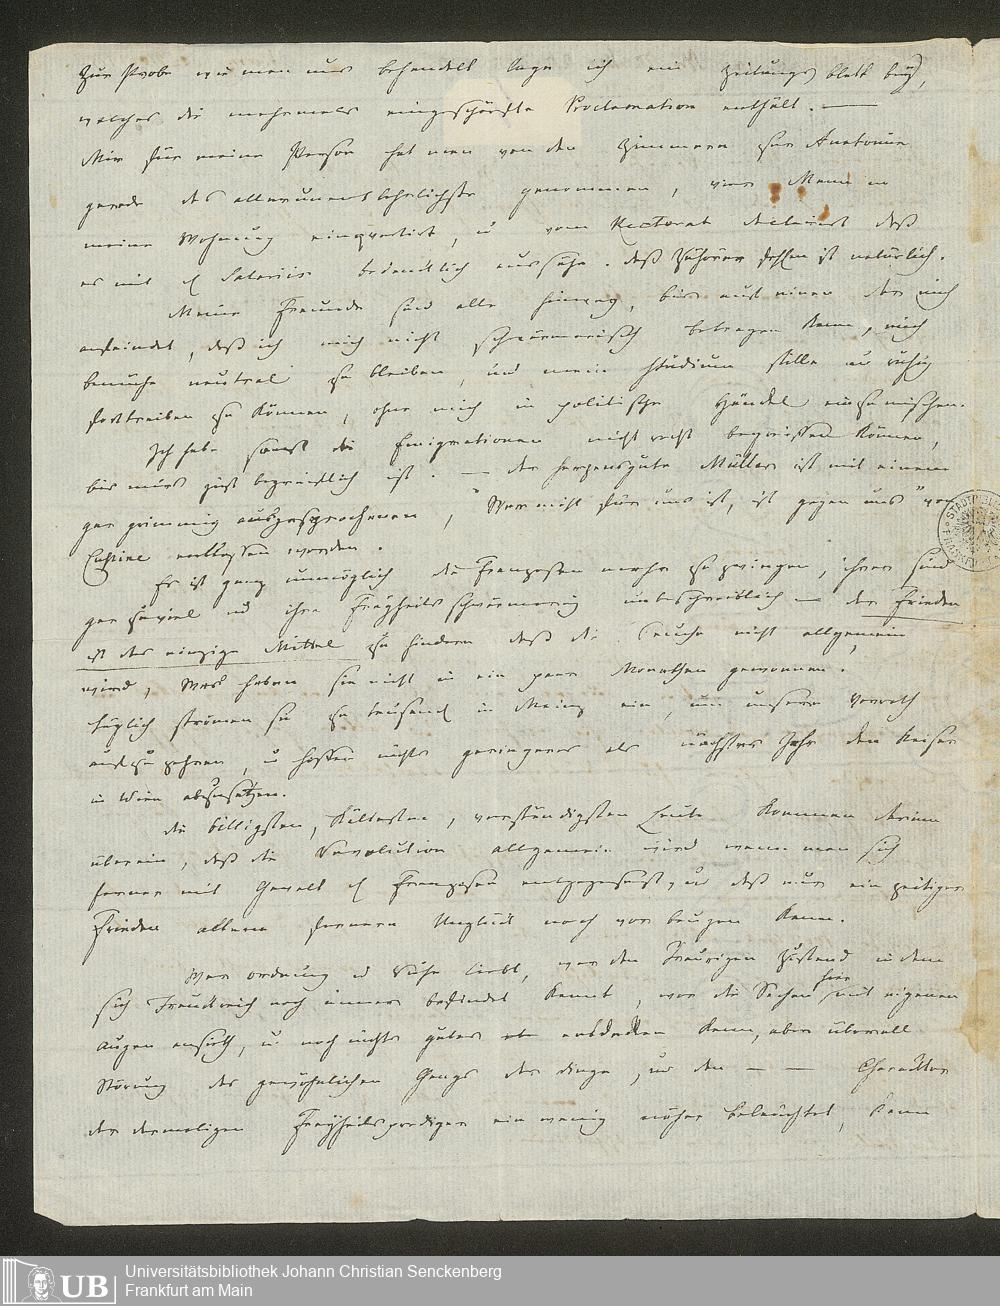 Zur Probe wie man uns behandelt lege ich ein Zeitungsblatt bey,
welches die mehrmals eingeschärfte Proclamation enthält. —
Mir für meine Person hat man von den Zimmern zur Anatomie
gerade das allerunentbehrlichste genommen, vier Mann in
meine Wohnung einquartirt, u vom Rectorat declarirt daß
es mit d Salariis bedenklich aussehe. daß Zuhörer fehlen ist natürlich.
Meine Freunde sind alle hinweg, bis auf einen der mich
anfeindet, daß ich mich nicht schwärmerisch betragen kann, mich
bemühe neutral zu bleiben, und mein Studium stille u ruhig
forttreiben zu können, ohne mich in politische Händel einzumischen.
Ich habe sonst die Emigrationen nicht recht begreiffen können,
bis mirs jezt begreiflich ist. — der herzensgute Müller ist mit einem
gar grimmig ausgesprochenen, "Wer nicht für uns ist, ist gegen uns" von
Custine entlassen worden.
Es ist ganz unmöglich die Franzosen mehr zu zwingen, ihrer sind
gar zuviel und ihre Freyheitsschwärmerey unbeschreiblich — der Frieden
ist das einzige Mittel zu hindern daß die Seuche nicht allgemein
wird, Was haben sie nicht in ein paar Monathen gewonnen.
täglich strömen sie zu tausend in Mainz ein, um unsern Vorrath
aufzuzehren, u hoffen nichts geringeres als nächstes Jahr den Kaiser
in Wien abzusetzen.
die billigsten, kältesten, verständigsten Leute kommen darinn
überein, daß die Revolution allgemein wird wenn man sich
ferner mit Gewalt d Franzosen entgegensezt, und daß nur ein zeitiger
Frieden allem fernern Unglück noch vorbeugen kann.
Wer ordnung u Ruhe liebt, wer den traurigen Zustand in dem
sich Frankreich noch immer befindet kennt, wer die Sachen hier mit eigenen
augen ansieht, u. noch nichts gutes entdecken kann, aber überall
Störung des gewöhnlichen Gangs der dinge, und den — — Charakter
der dermaligen Freyheitsprediger ein wenig näher beleuchtet, kann
STADTBIBL
FRANKFURT
UB
Universitätsbibliothek Johann Christian Senckenberg
Frankfurt am Main